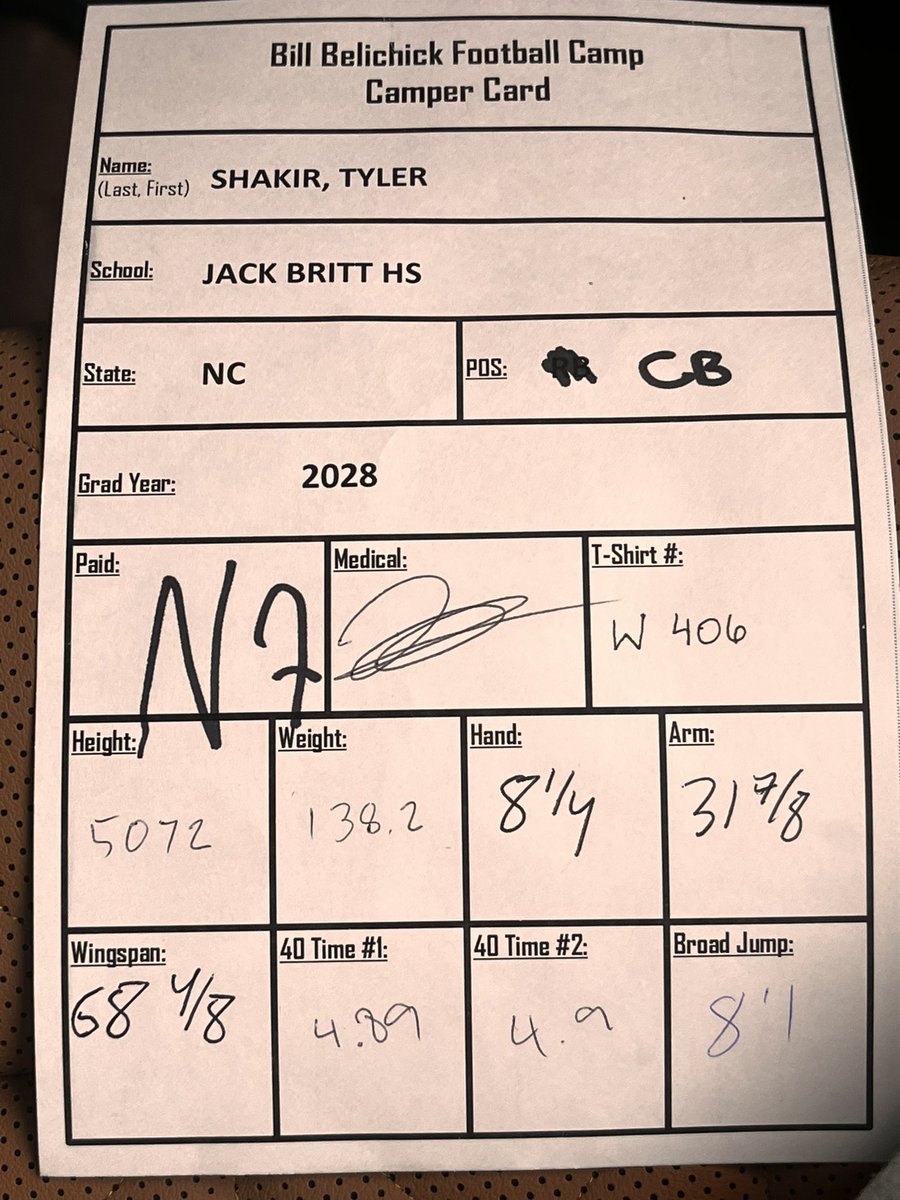 Bill Belichick Football Camp
Camper Card
Name:
(Last, First) SHAKIR, TYLER
School: JACK BRITT HS
State: NC POS: CB
Grad Year: 2028
Paid: Medical: T-Shirt #:
W 406
Height: Weight: Hand: Arm:
5072 138.2 8 1/4 31 7/8
Wingspan: 40 Time #1: 40 Time #2: Broad Jump:
68 4/8 4.89 4.9 8'1